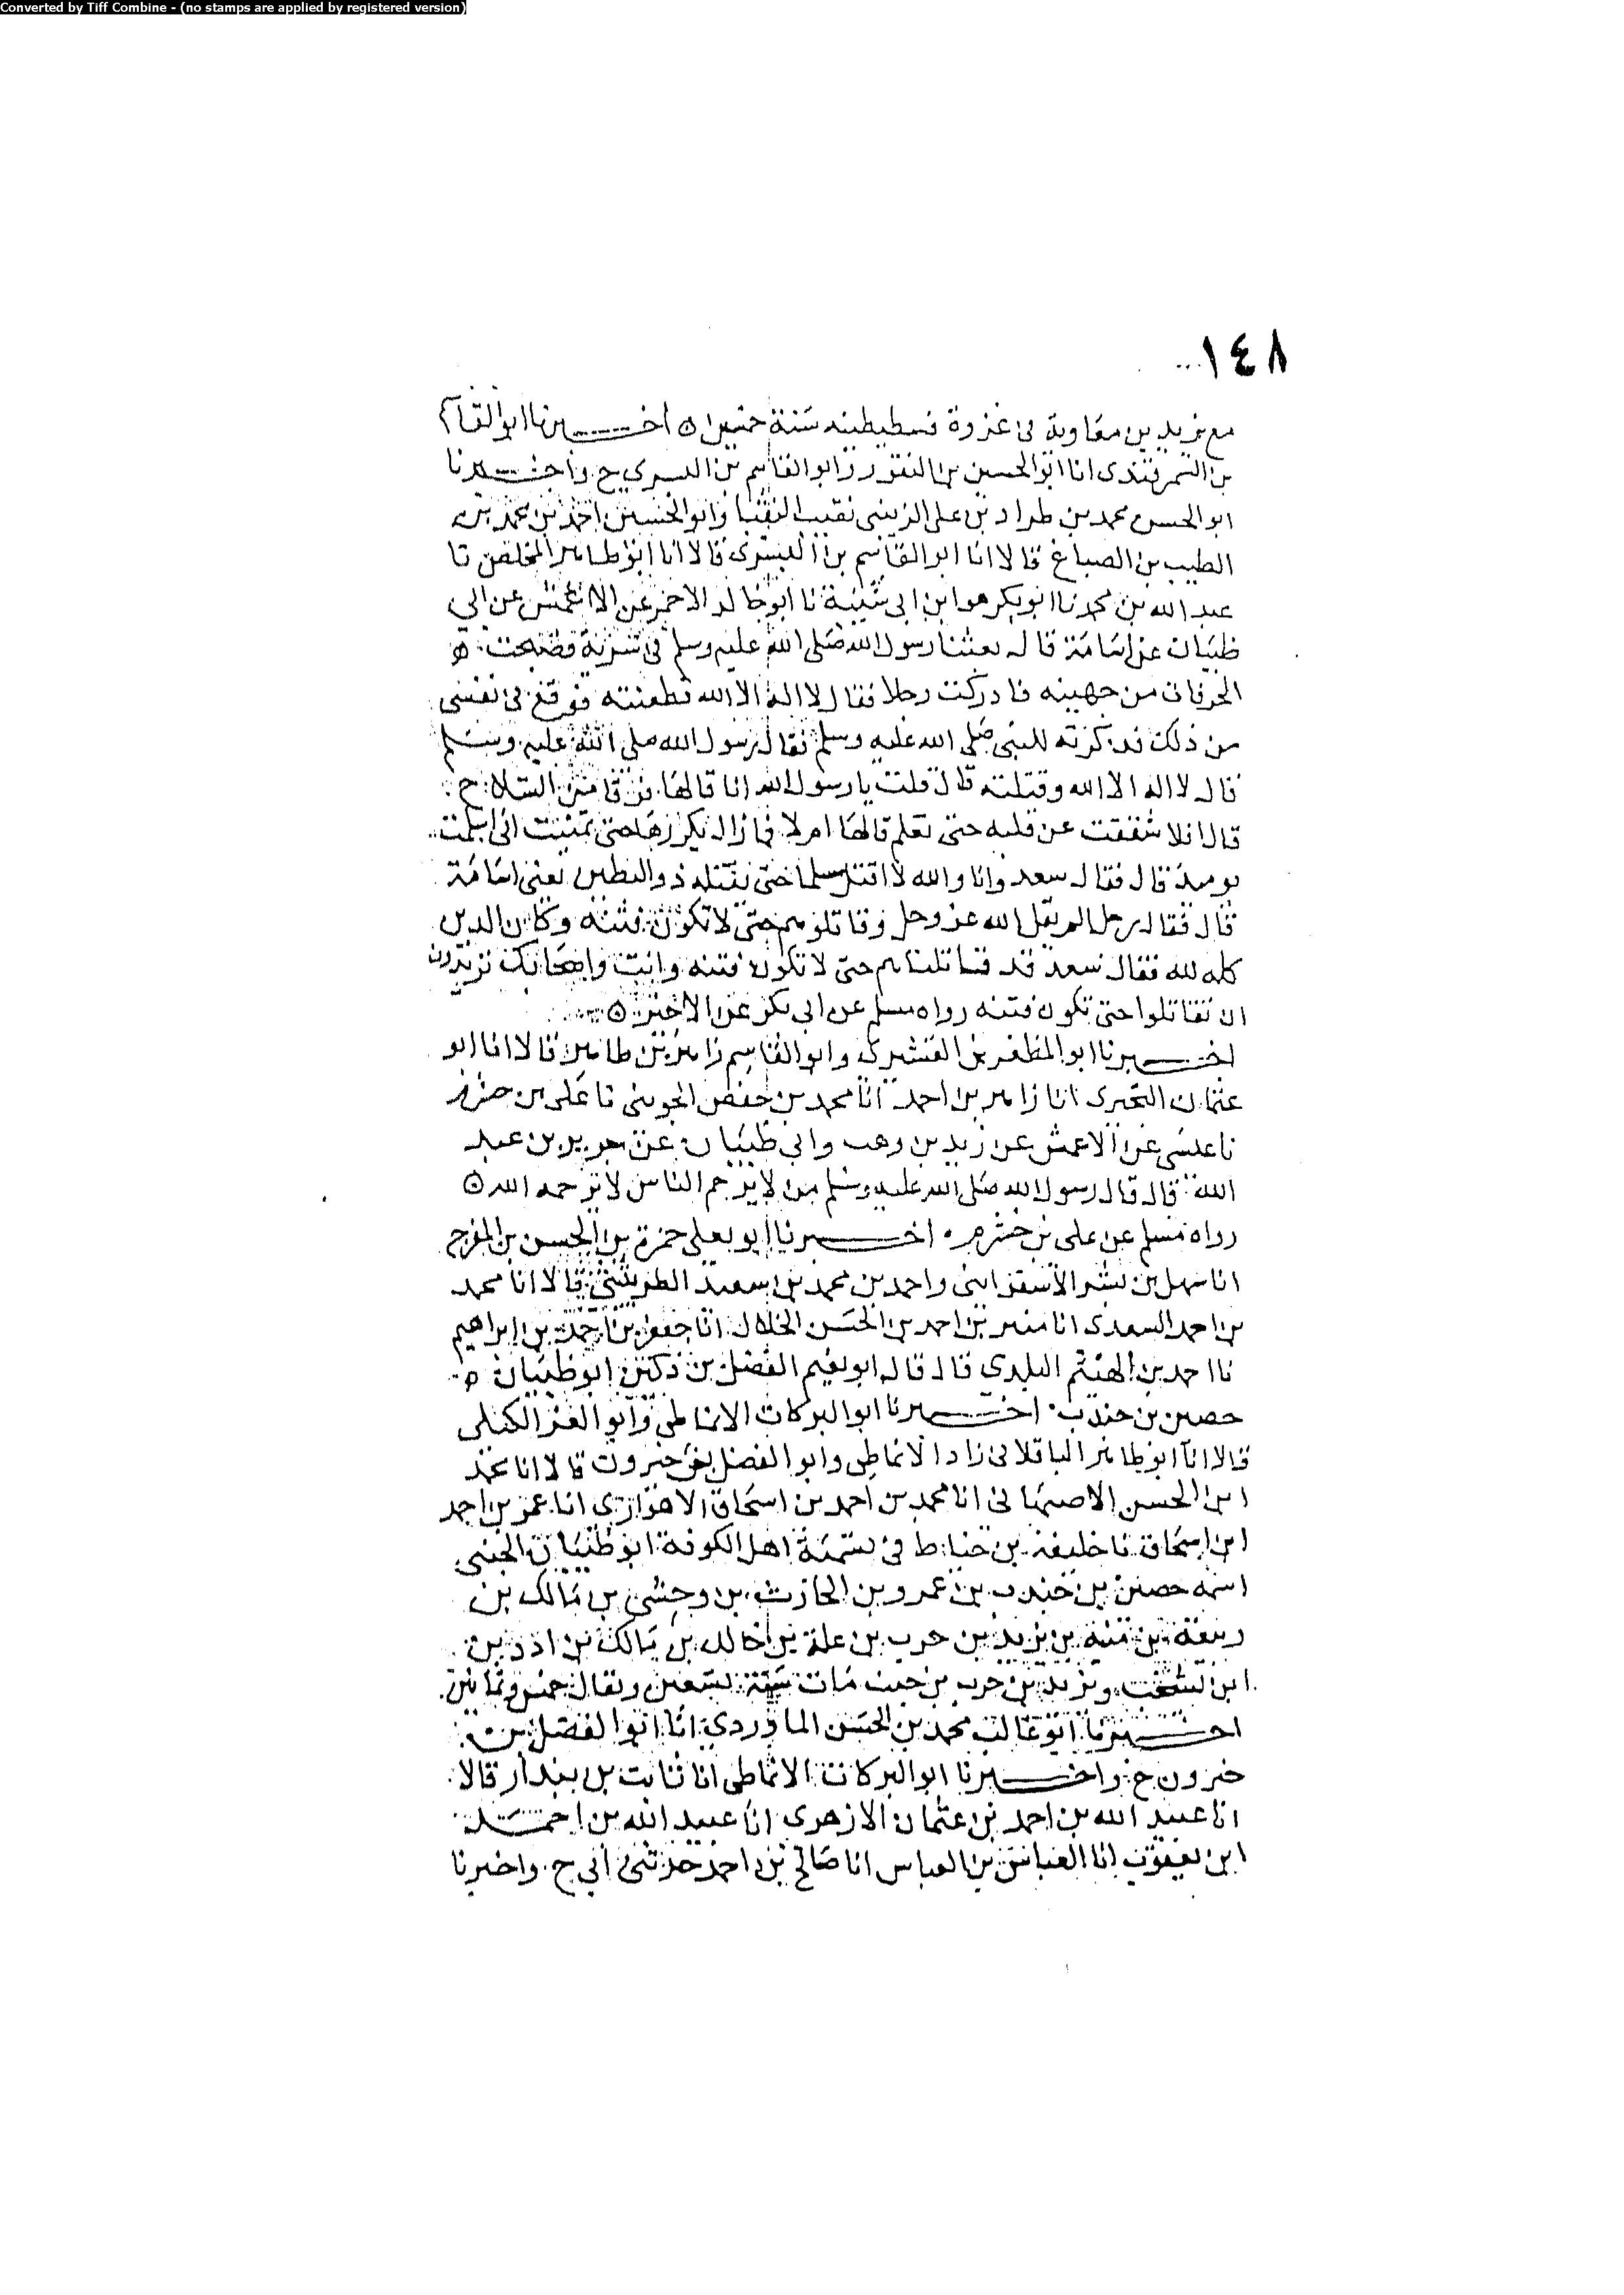 Converted by Tiff Combine - (no stamps are applied by registered version)
١٤٨
مع يزيد بن معاوية في غزوة قسطيطينه سنة خمسين ه اخبرنا ابو القاسم
بن السمرقندى انا ابو الحسين بن النقور وابو القاسم بن البسري ح واخبرنا
ابو الحسن محمد بن طراد بن على الزينبى نقيب النقبا وابو الحسين احمد بن محمد بن
الطيب بن الصباغ قالا انا ابو القاسم بن البسرى قالا انا ابو طاهر المخلص نا
عبد الله بن محمد نا ابو بكر هو ابن ابى شيبة نا ابو خالد الاحمر عن الاعمش عن ابي
ظبيان عن اسامة قال بعثنا رسول الله صلى الله عليه وسلم في سرية فصبحت ه
الحرقات من جهينه فادركت رجلا فقال لا اله الا الله فطعنته فوقع في نفسى
من ذلك فذكرته للنبى صلى الله عليه وسلم فقال رسول الله صلى الله عليه وسلم
قال لا اله الا الله وقتلته قال قلت يا رسول الله انا قالها فرقا من السلاح
قال افلا شققت عن قلبه حتى تعلم قالها ام لا فما زال يكررها حتى تمنيت انى اسلمت
يوميذ قال فقال سعد وانا والله لا اقتل مسلما حتى يقتله ذو البطين يعنى اسامة
قال فقال رجل الم يقل الله عز وجل وقاتلوهم حتى لا تكون فتنه وكان الدين
كله لله فقال سعد قد قاتلناهم حتى لا تكون فتنه وانت واصحابك تريدون
ان تقاتلوا حتى تكون فتنه رواه مسلم عن ابى بكر عن الاحمر ه
اخبرنا ابو المظفر بن القشيرى وابو القاسم زاهر بن طاهر قالا انا ابو
عثمان البحيرى انا زاهر بن احمد انا محمد بن حفص الجوينى نا على بن خشرم
نا عيسى عن الاعمش عن زيد بن وهب وابي ظبيان عن جرير بن عبد
الله قال قال رسول الله صلى الله عليه وسلم من لا يرحم الناس لا يرحمه الله ه
رواه مسلم عن على بن خشرم ه اخبرنا ابو يعلى حمزة بن الحسن بن المفرج
انا سهل بن بشر الاسفراينى واحمد بن محمد بن سعيد الطريثيثى قالا انا محمد
بن احمد السعدى انا منير بن احمد بن الحسن الخلال انا جعفر بن احمد بن ابراهيم
نا احمد بن الهيثم البلدي قال قال ابو نعيم الفضل بن دكين ابو ظبيان ه
حصين بن جندب ه اخبرنا ابو البركات الانماطى وابو العز الكيلى
قالا انا ابو طاهر الباقلانى زاد الانماطى وابو الفضل بن خيرون قالا انا محمد
ابن الحسن الاصبهانى انا محمد بن احمد بن اسحاق الاهوازى انا عمر بن احمد
ابن اسحاق نا خليفة بن خياط في تسمية اهل الكوفة ابو ظبيان الجنبى
اسمه حصين بن جندب بن عمرو بن الحارث بن وحشى بن مالك بن
ربيعة بن منبه بن يزيد بن حرب بن علة بن خالد بن مالك بن ادد بن
ابن يشخب ويزيد بن حرب بن جنب مات سنة تسعين ويقال خمس وثمانين
اخبرنا ابو غالب محمد بن الحسن الماوردي انا ابو الفضل بن
خيرون ح واخبرنا ابو البركات الانماطى انا ثابت بن بندار قالا
انا عبيد الله بن احمد بن عثمان الازهرى انا عبيد الله بن احمد
ابن يعقوب انا العباس بن العباس انا صالح بن احمد حدثنى ابي ح واخبرنا